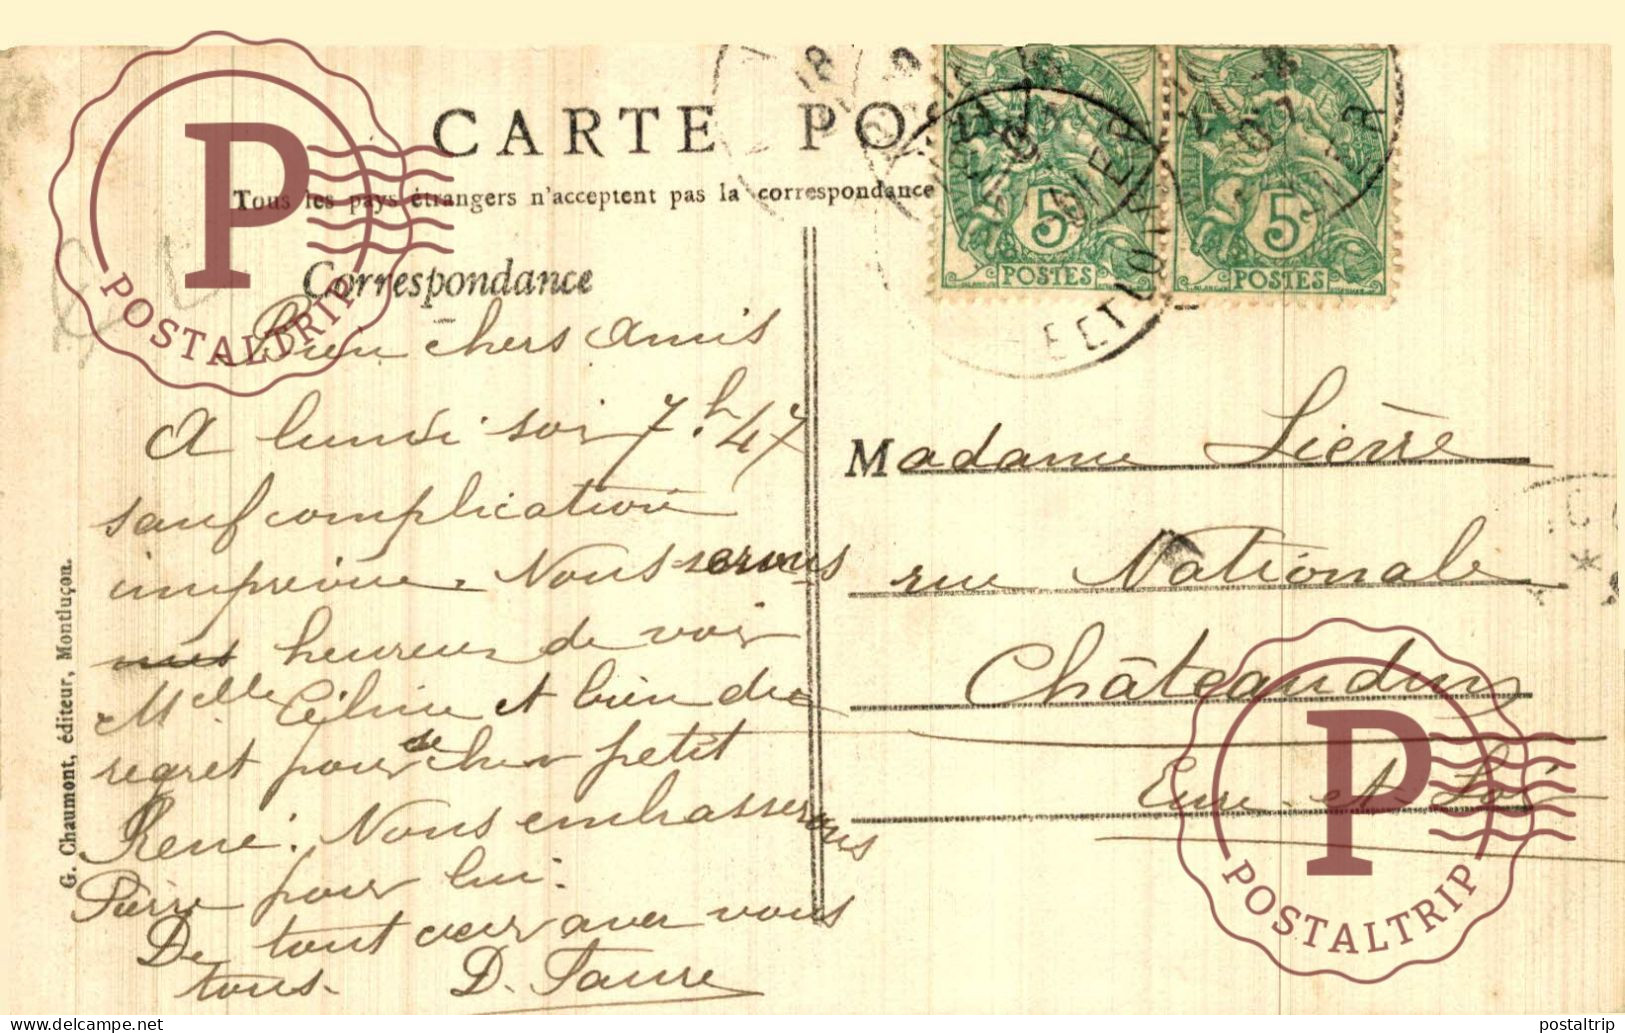 CARTE PO
Tous les pays étrangers n'acceptent pas la correspondance
Correspondance
Bien chers amis
A lundi soir 7h.47
sauf complication
imprévue. Nous serons
heureux de voir
Melle Céline et bien du
regret pour ce cher petit
René. Nous embrasserons
Pierre pour lui.
De tout cœur avec vous
tous. D. Faure
G. Chaumont, éditeur, Montluçon.
5
POSTES
5
POSTES
Madame Lierre
rue Nationale
Châteaudun
Eure-et-Loi
P
POSTALTRIP
P
POSTALTRIP
postaltrip